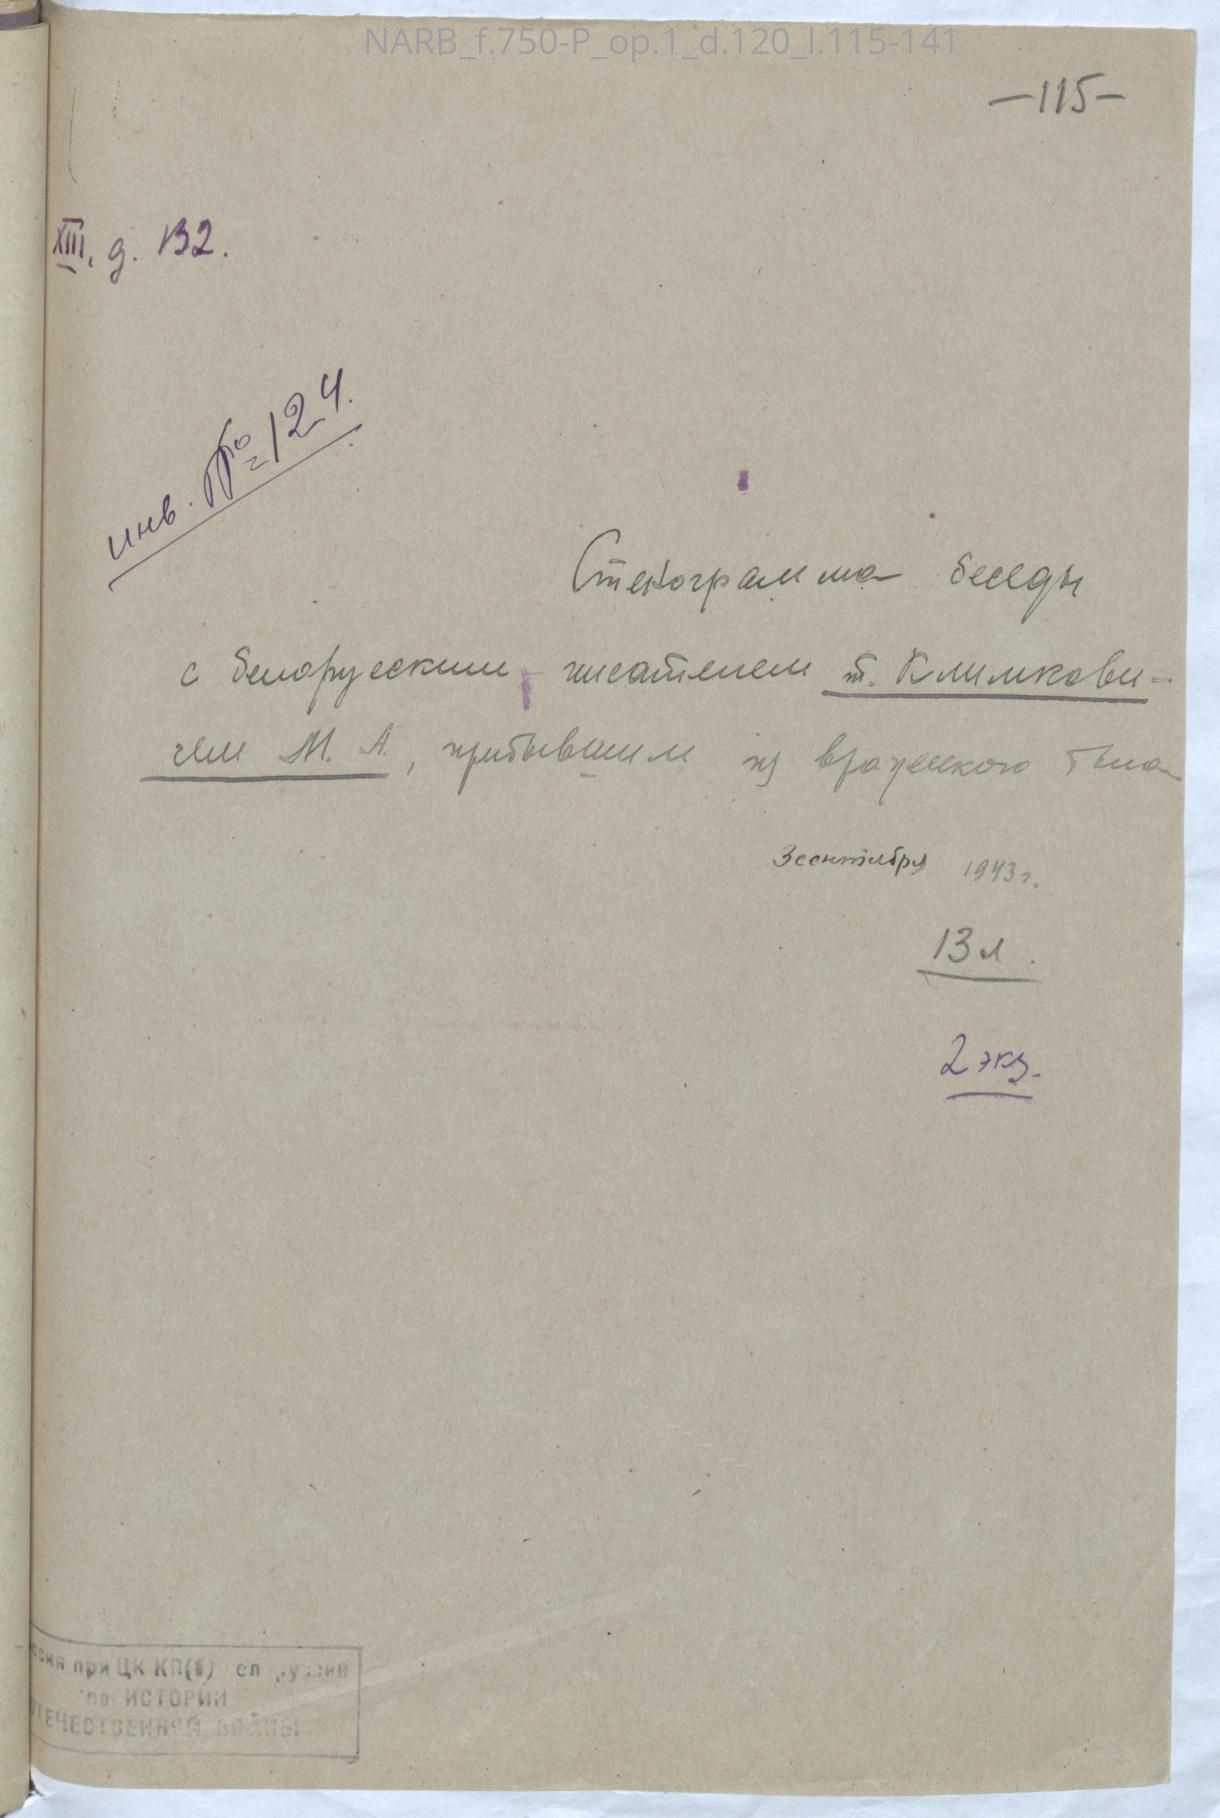 NARB_f.750-P_op.1_d.120_l.115-141
—115—
XIII, д. 132.
инв. № 124.
Стенограмма беседы
с белорусским писателем т. Климкови-
чем М. А., прибывшим из вражеского тыла
3 сентября 1943 г.
13 л.
2 экз.
ссия при ЦК КП(б)
по ИСТОРИИ
ОТЕЧЕСТВЕННОЙ ВОЙНЫ